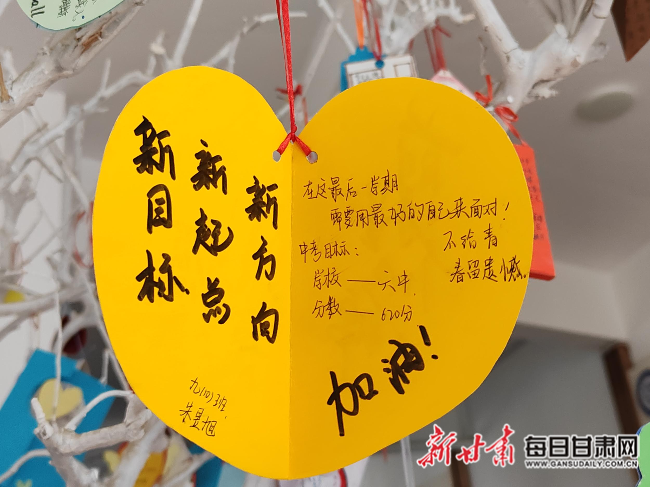 新目标
新起点
新方向
九(四)班
在这最后一学期
需要用最好的自己来面对！
不给青
春留遗憾。
中考目标：
学校——六中
分数——620分
加油！
新甘肃
每日甘肃网
WWW.GANSUDAILY.COM.CN
all